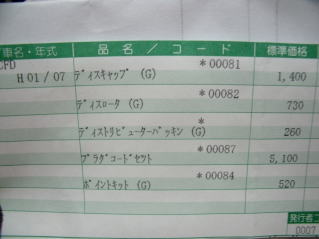 車名・年式 品名／コード 標準価格
CFD *00081
H 01/07 ﾃﾞｨｽｷｬｯﾌﾟ (G) 1,400
*00082
ﾃﾞｨｽﾛｰﾀ (G) 730
*
ﾃﾞｨｽﾄﾘﾋﾞｭｰﾀｰﾊﾟｯｷﾝ (G) 260
*00087
ﾌﾟﾗｸﾞｺｰﾄﾞｾｯﾄ 5,100
*00084
ﾎﾟｲﾝﾄｷｯﾄ (G) 520
発行者
0007